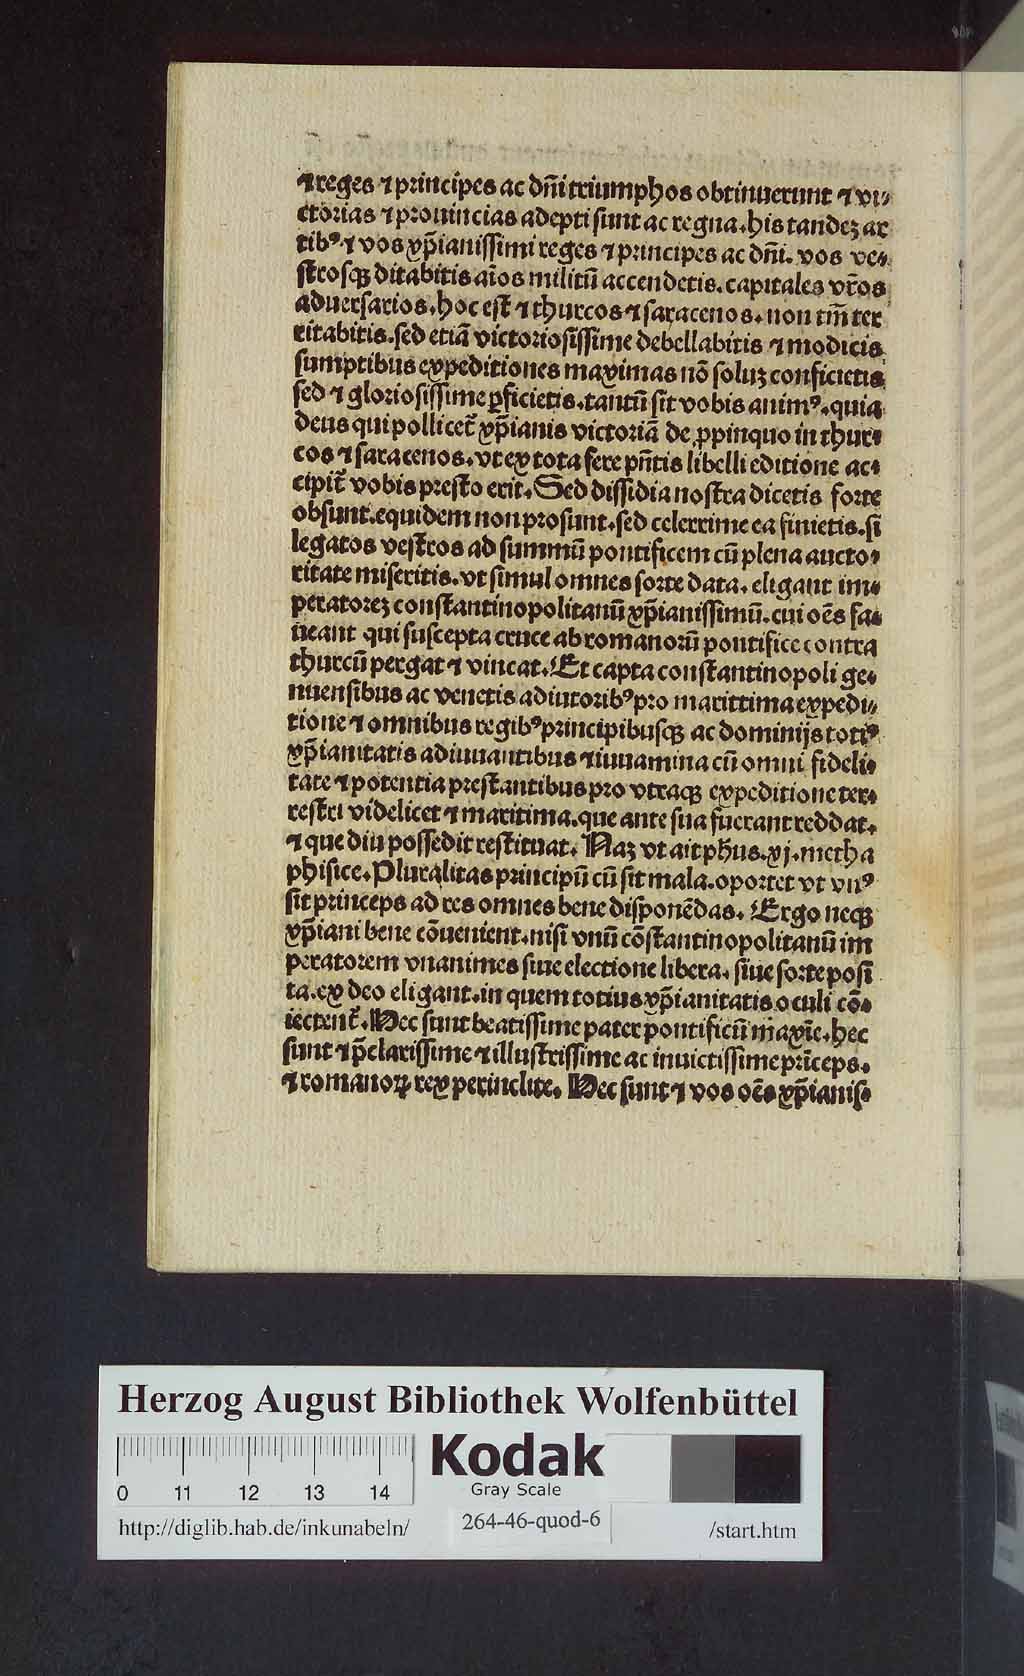 ⁊ reges ⁊ principes ac dñi triumphos obtinuerunt ⁊ vi⸗
ctorias ⁊ prouincias adepti sunt ac regna. his tandeꝫ ar
tibꝰ ⁊ vos xp̄ianissimi reges ⁊ principes ac dñi. vos ve⸗
strosqꝫ ditabitis aīos militū accendetis. capitales vr̄os
aduersarios. hoc est ⁊ thurcos ⁊ saracenos. non tm̄ ter
ritabitis. sed etiā victoriosissime debellabitis ⁊ modicis
sumptibus expeditiones maximas nō soluꝫ conficietis
sed ⁊ gloriosissime ꝑficietis. tantū sit vobis animꝰ. quia
deus qui pollicet̄ xp̄ianis victoriā de ꝓpinquo in thur⸗
cos ⁊ saracenos. vt ex tota fere pn̄tis libelli editione ac⸗
cipit̄ vobis presto erit. Sed dissidia nostra dicetis forte
obsunt. equidem non prosunt. sed celerrime ea finietis. si
legatos vestros ad summū pontificem cū plena aucto⸗
ritate miseritis. vt simul omnes sorte data. eligant im⸗
peratoreꝫ constantinopolitanū xp̄ianissimū. cui oēs fa⸗
ueant qui suscepta cruce ab romanorū pontifice contra
thurcū pergat ⁊ vincat. Et capta constantinopoli ge⸗
nuensibus ac venetis adiutoribꝰ pro marittima expedi⸗
tione ⁊ omnibus regibꝰ principibusqꝫ ac dominijs totiꝰ
xp̄ianitatis adiuuantibus ⁊ iuuamina cū omni fideli⸗
tate ⁊ potentia prestantibus pro vtraqꝫ expeditione ter⸗
restri videlicet ⁊ maritima. que ante sua fuerant reddat.
⁊ que diu possedit restituat. Naꝫ vt ait ph̄us. xj. metha
phisice. Pluralitas principū cū sit mala. oportet vt vnꝰ
sit princeps ad res omnes bene disponēdas. Ergo neqꝫ
xp̄iani bene cōuenient. nisi vnū cōstantinopolitanū im
peratorem vnanimes siue electione libera. siue sorte posi
ta. ex deo eligant. in quem totius xp̄ianitatis oculi cō⸗
iectent̄. Hec sunt beatissime pater pontificū maxīe. hec
sunt ⁊ p̄clarissime ⁊ illustrissime ac inuictissime prīceps.
⁊ romanoꝝ rex perinclite. Hec sunt ⁊ vos oēs xp̄ianis⸗
Herzog August Bibliothek Wolfenbüttel
Kodak
Gray Scale
0 11 12 13 14
http://diglib.hab.de/inkunabeln/ 264-46-quod-6 /start.htm